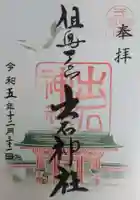 奉拝
但馬一宮 出石神社
令和五年十二月
出石
神社